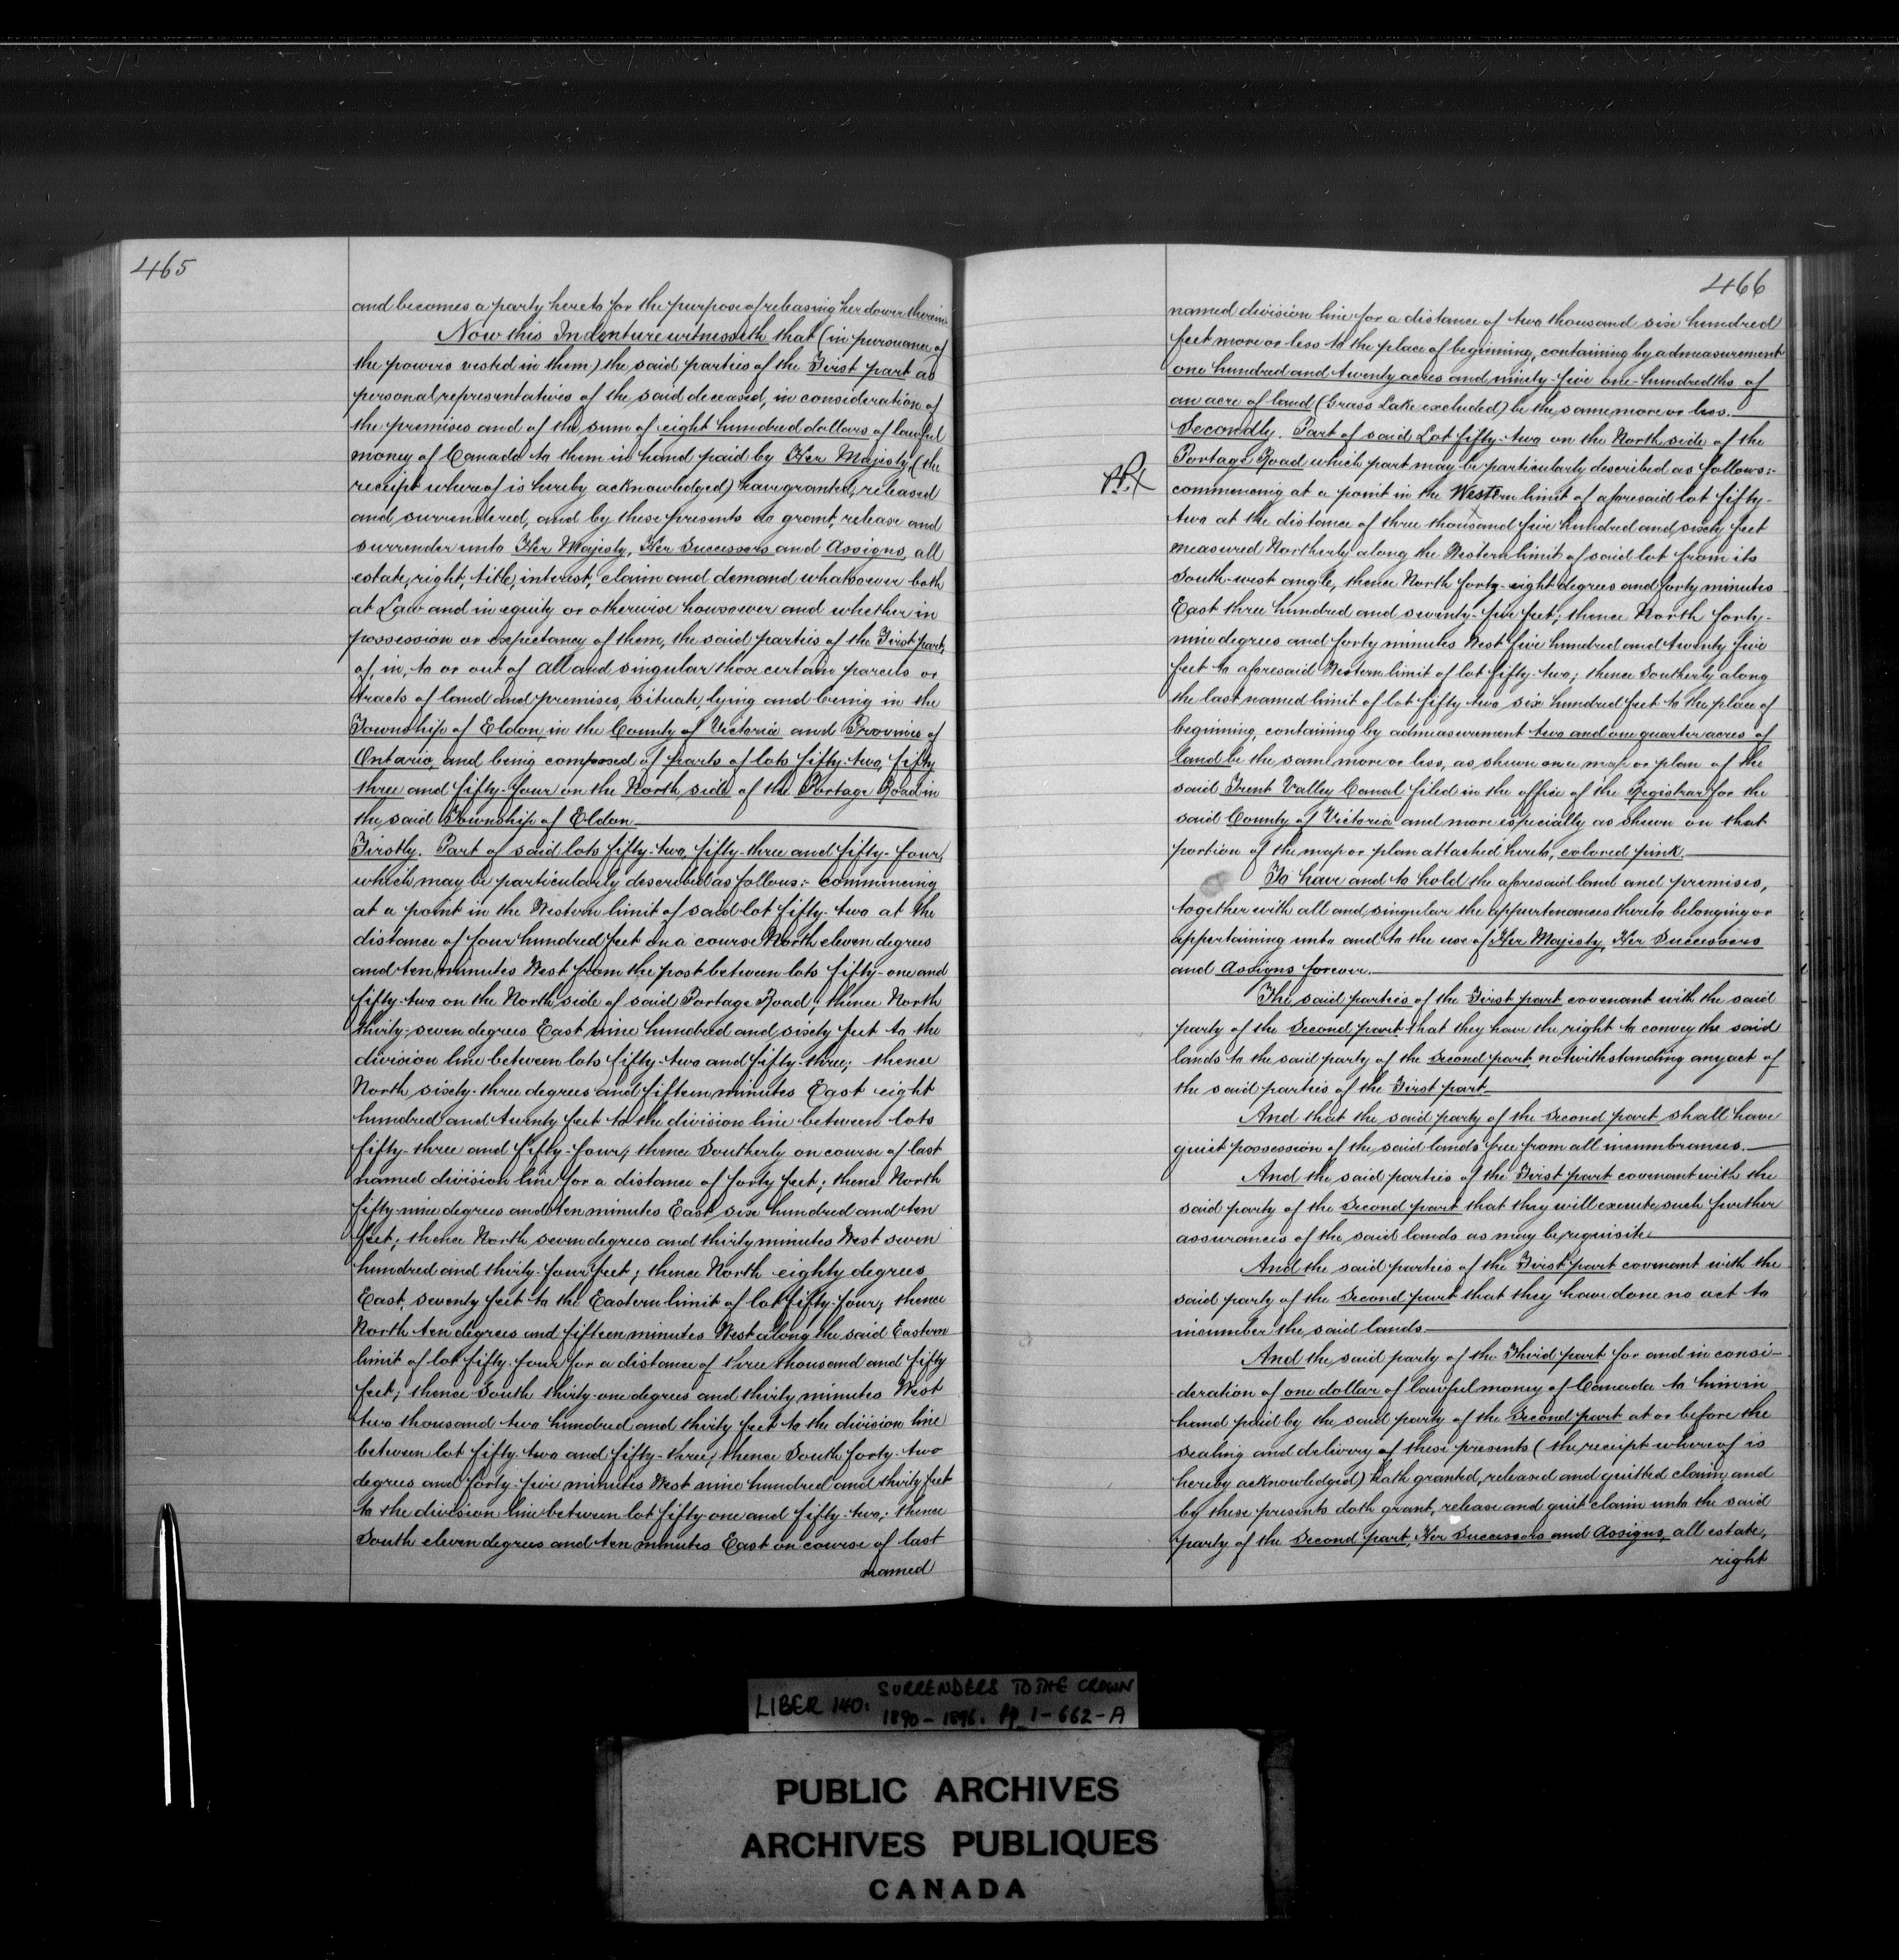 465
and becomes a party hereto for the purpose of releasing her dower therein.
Now this Indenture witnesseth that (in pursuance of
the powers vested in them) the said parties of the First part as
personal representatives of the said deceased, in consideration of
the premises and of the sum of eight hundred dollars of lawful
money of Canada to them in hand paid by Her Majesty, (the
receipt whereof is hereby acknowledged) have granted, released
and surrendered, and by these presents do grant, release and
surrender unto Her Majesty, Her Successors and Assigns, all
estate, right, title, interest, claim and demand whatsoever both
at Law and in equity or otherwise howsoever and whether in
possession or expectancy of them, the said parties of the First part,
of, in, to or out of all and singular those certain parcels or
tracts of land and premises, situate, lying and being in the
Township of Eldon, in the County of Victoria and Province of
Ontario, and being composed of parts of lots fifty-two, fifty
three and fifty-four on the North side of the Portage Road in
the said Township of Eldon
Firstly. Part of said lots fifty-two, fifty-three and fifty-four,
which may be particularly described as follows:- commencing
at a point in the Western limit of said lot fifty-two at the
distance of four hundred feet on a course North eleven degrees
and ten minutes West from the post between lots fifty-one and
fifty-two on the North side of said Portage Road; thence North
thirty-seven degrees East nine hundred and sixty feet to the
division line between lots fifty-two and fifty-three; thence
North sixty-three degrees and fifteen minutes East eight
hundred and twenty feet to the division line between lots
fifty-three and fifty-four; thence Southerly on course of last
named division line for a distance of forty feet; thence North
fifty-nine degrees and ten minutes East six hundred and ten
feet; thence North seven degrees and thirty minutes West seven
hundred and thirty-four feet; thence North eighty degrees
East, seventy feet to the Eastern limit of lot fifty-four; thence
North ten degrees and fifteen minutes West along the said Eastern
limit of lot fifty-four for a distance of three thousand and fifty
feet; thence South thirty-one degrees and thirty minutes West
two thousand two hundred and thirty feet to the division line
between lot fifty-two and fifty-three; thence South forty-two
degrees and forty-five minutes West nine hundred and thirty feet
to the division line between lot fifty-one and fifty-two; thence
South eleven degrees and ten minutes East on course of last
named
466
named division line for a distance of two thousand six hundred
feet more or less to the place of beginning, containing by admeasurement
one hundred and twenty acres and ninety-five one-hundredths of
an acre of land (Grass Lake excluded) be the same more or less.
Secondly. Part of said Lot fifty-two on the North side of the
Portage Road which part may be particularly described as follows:-
commencing at a point in the Western limit of aforesaid lot fifty-
two at the distance of three thousand five hundred and sixty feet
measured Northerly along the Western limit of said lot from its
South-west angle, thence North forty-eight degrees and forty minutes
East three hundred and seventy-five feet; thence North forty-
nine degrees and forty minutes West five hundred and twenty five
feet to aforesaid Western limit of lot fifty-two; thence Southerly along
the last named limit of lot fifty two six hundred feet to the place of
beginning, containing by admeasurement two and one quarter acres of
land be the same more or less, as shewn on a map or plan of the
said Trent Valley Canal filed in the office of the Registrar for the
said County of Victoria and more especially as shewn on that
portion of the map or plan attached hereto, colored pink.
To have and to hold the aforesaid land and premises,
together with all and singular the appurtenances thereto belonging or
appertaining unto and to the use of Her Majesty, Her Successors
and Assigns forever.
The said parties of the First part covenant with the said
party of the Second part that they have the right to convey the said
lands to the said party of the Second part, notwithstanding any act of
the said parties of the First part
And that the said party of the Second part shall have
quiet possession of the said lands free from all incumbrances.
And the said parties of the First part covenant with the
said party of the Second part that they will execute such further
assurances of the said lands as may be requisite
And the said parties of the First part covenant with the
said party of the Second part that they have done no act to
incumber the said lands
And the said party of the Third part for and in consi-
deration of one dollar of lawful money of Canada to him in
hand paid by the said party of the Second part at or before the
sealing and delivery of these presents (the receipt whereof is
hereby acknowledged) hath granted, released and quitted claim, and
by these presents doth grant, release and quit claim unto the said
party of the Second part, Her Successors and Assigns, all estate,
right
LIBER 140: SURRENDERS TO THE CROWN
1890-1896. pp 1-662-A
PUBLIC ARCHIVES
ARCHIVES PUBLIQUES
CANADA